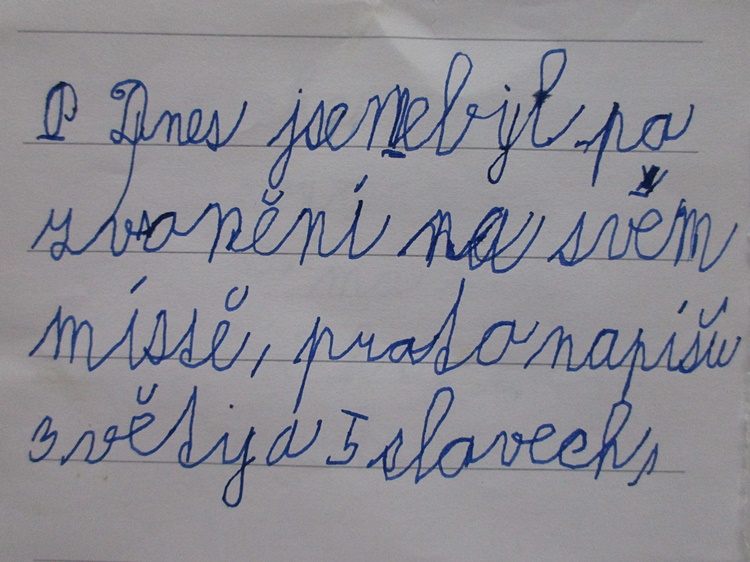 Dnes jsem nebyl po
zvonění na svém
místě, proto napíšu
3 věty o 5 slovech,